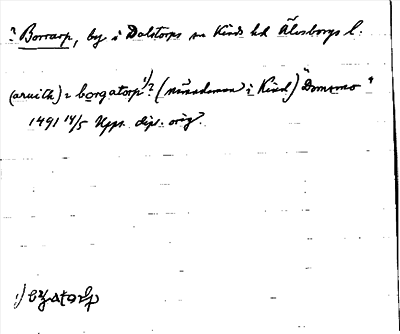 ? Borrarp, by i Dalstorps sn Kinds hd Älvsborgs l.
(aruith) i borgatorp 1)? (nünsdomen i Kind) "Domsmo"
1491 14/5 Upps. dipl. orig.
1) bzatorp